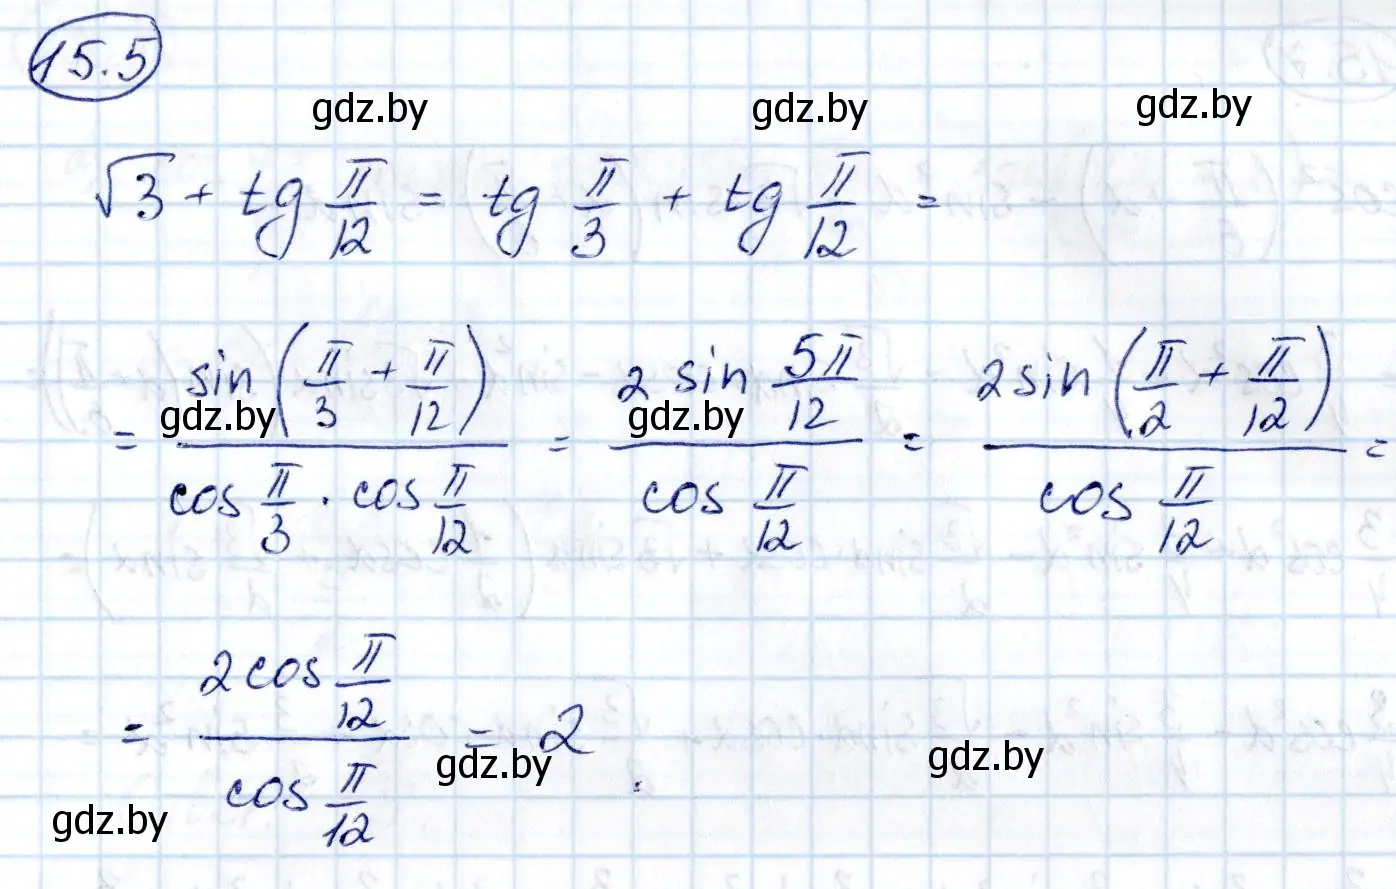 15.5
gdz.by gdz.by gdz.by
√3 + tg π/12 = tg π/3 + tg π/12 =
= sin(π/3 + π/12) / (cos π/3 · cos π/12) = 2 sin 5π/12 / cos π/12 = 2 sin(π/2 + π/12) / cos π/12 =
gdz.by gdz.by
= 2 cos π/12 / cos π/12 = 2.
gdz.by gdz.by
gdz.by